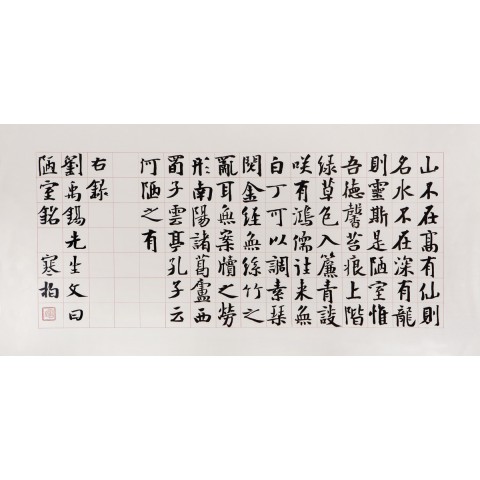 山不在高有仙則
名水不在深有龍
則靈斯是陋室惟
吾德馨苔痕上階
綠草色入簾青談
咲有鴻儒往来無
白丁可以調素琴
閱金経無絲竹之
亂耳無案牘之勞
形南陽諸葛廬西
蜀子雲亭孔子云
何陋之有
右錄
劉禹錫先生文曰
陋室銘 寒柏